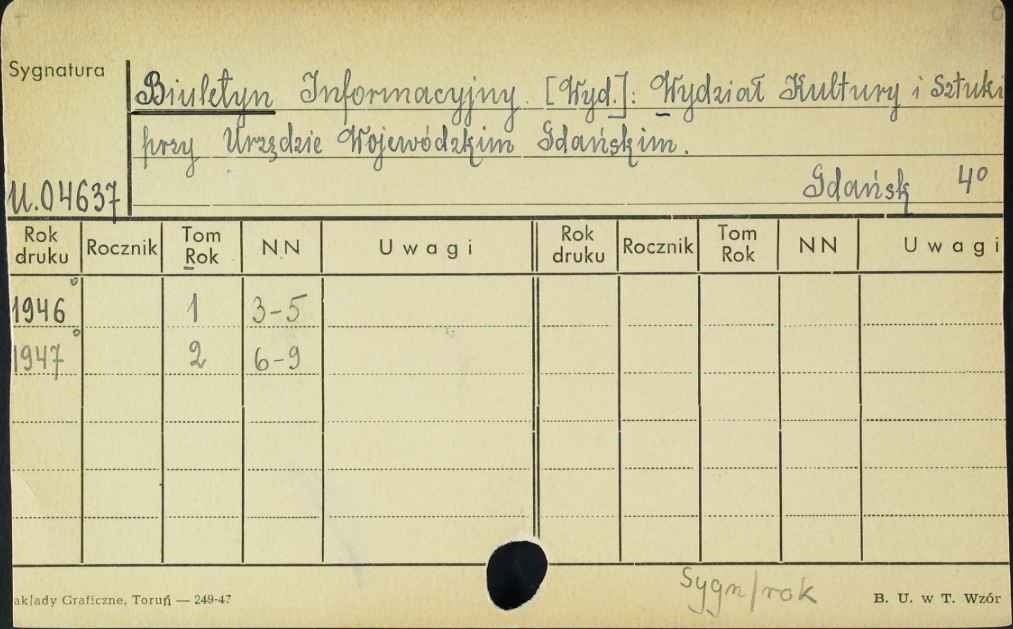 Sygnatura
Biuletyn Informacyjny. [Wyd.]: Wydział Kultury i Sztuki
przy Urzędzie Wojewódzkim Gdańskim.
Gdańsk 4°
U.04637
Rok druku Rocznik Tom Rok NN Uwagi Rok druku Rocznik Tom Rok NN Uwagi
1946° 1 3-5
1947° 2 6-9
Sygn/rok
akłady Graficzne, Toruń — 249-47 B. U. w T. Wzór